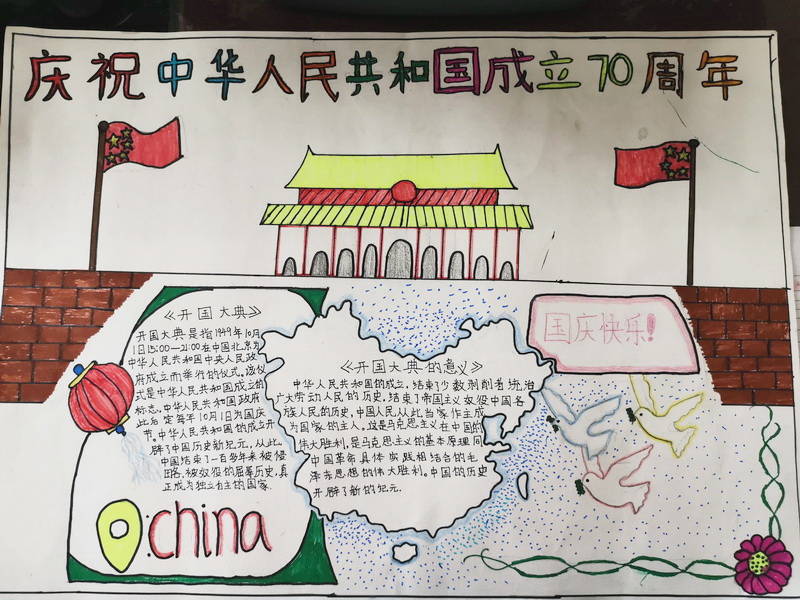 庆祝中华人民共和国成立70周年
《开国大典》
开国大典是指1949年10月
1日15:00—21:00在中国北京为
中华人民共和国中央人民政
府成立而举行的仪式。该仪
式是中华人民共和国成立的
标志。中华人民共和国政府
此后定每年10月1日为国庆
节。中华人民共和国的成立开
辟了中国历史新纪元。从此
中国结束了一百多年来被侵
略、被奴役的屈辱历史,真
正成为独立自主的国家.
:china
《开国大典的意义》
中华人民共和国的成立,结束了少数剥削者统治
广大劳动人民的历史。结束了帝国主义奴役中国各
族人民的历史。中国人民从此当家作主成
为国家的主人。这是马克思主义在中国的
伟大胜利,是马克思主义的基本原理同
中国革命具体实践相结合的毛
泽东思想的伟大胜利。中国的历史
开辟了新的纪元.
国庆快乐!